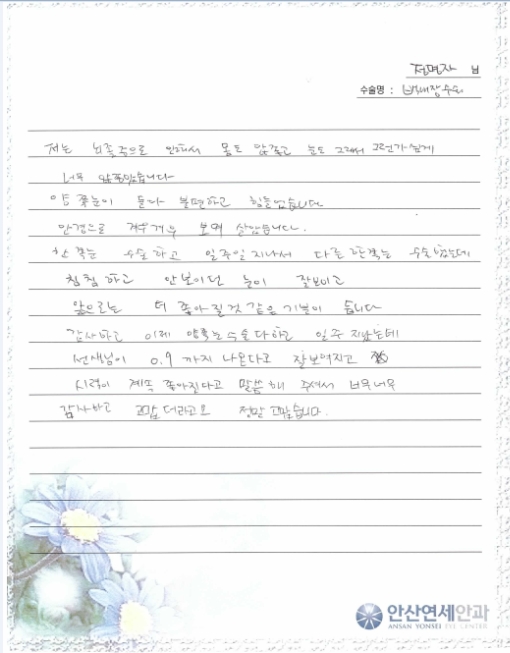 정명자 님
수술명 : 백내장수술
저는 뇌졸중으로 인해서 몸도 안좋고 눈도 그래서 그런가
너무 안좋았습니다
양쪽눈이 둘다 불편하고 힘들었습니다
안경으로 겨우겨우 보며 살았습니다.
한쪽눈 수술하고 일주일 지나서 다른 한쪽눈 수술했는데
침침하고 안보이던 눈이 잘보이고
앞으로는 더 좋아질것 같은 기분이 듭니다
감사하고 이제 양쪽눈수술 다하고 일주 지났는데
선생님이 0.9 까지 나온다고 잘보여지고
시력이 계속 좋아진다고 말씀해 주셔서 너무너무
감사하고 고맙더라고요 정말 고맙습니다.
안산연세안과
ANSAN YONSEI EYE CENTER